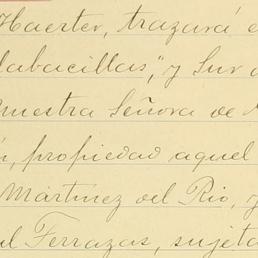 Haerter, trazará e
labacillas," y Sur d
uestra Señora de
n, propiedad aquel
Martinez del Rio, y
ul Terrazas, sujeta